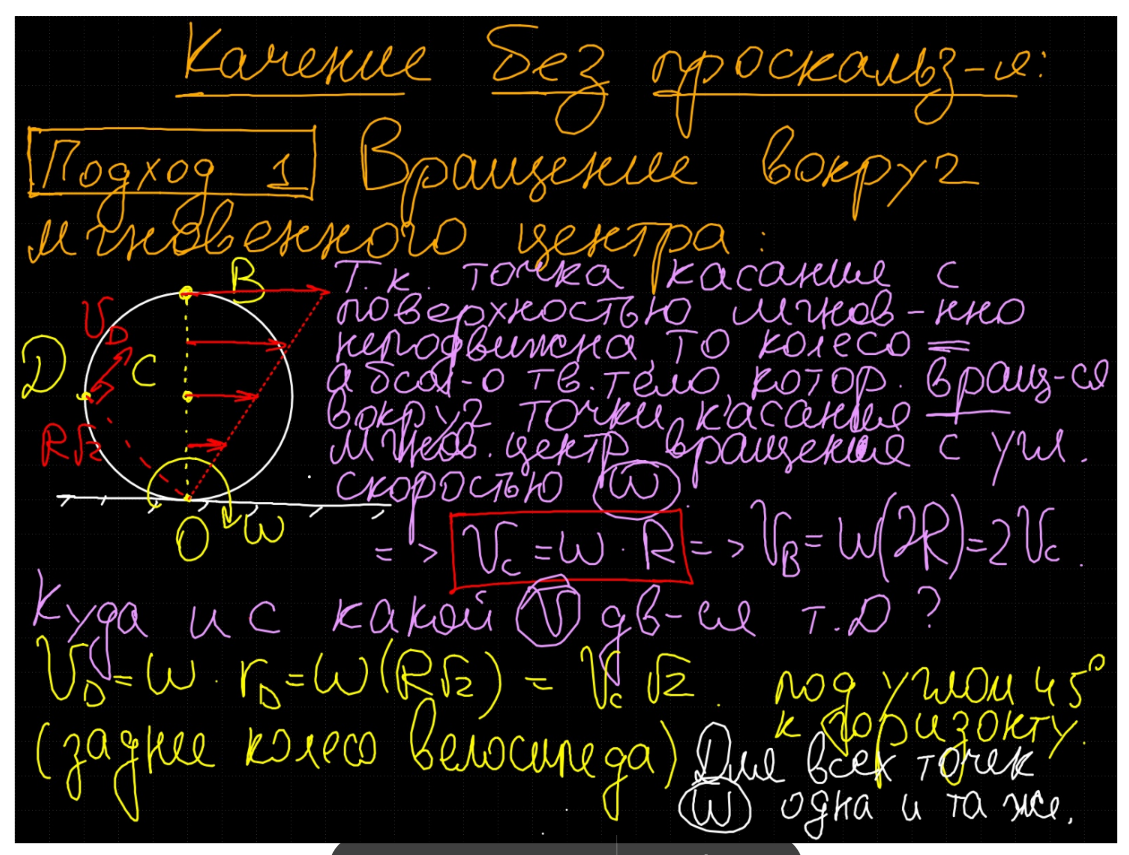 Качение без проскальз-я:
Подход 1 Вращение вокруг
мгновенного центра:
Т.к. точка касания с
поверхностью мгнов-нно
неподвижна, то колесо =
абсол-о тв. тело котор. вращ-ся
вокруг точки касания
мгнов. центр вращения с угл.
скоростью ω
B
V_D
D
C
R√2
O ω
=> V_C = ω · R => V_B = ω(2R) = 2V_C.
Куда и с какой V дв-ся т. D?
V_D = ω · r_D = ω(R√2) = V_C √2. под углом 45°
к горизонту.
(заднее колесо велосипеда)
Для всех точек
ω одна и та же.